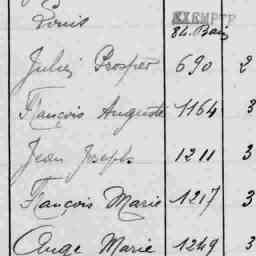 Louis EXEMPTE
84. Bais
Jules Prosper 690 2
François Auguste 1164 3
Jean Joseph 1211 3
François Marie 1217 3
Ange Marie 1249 3